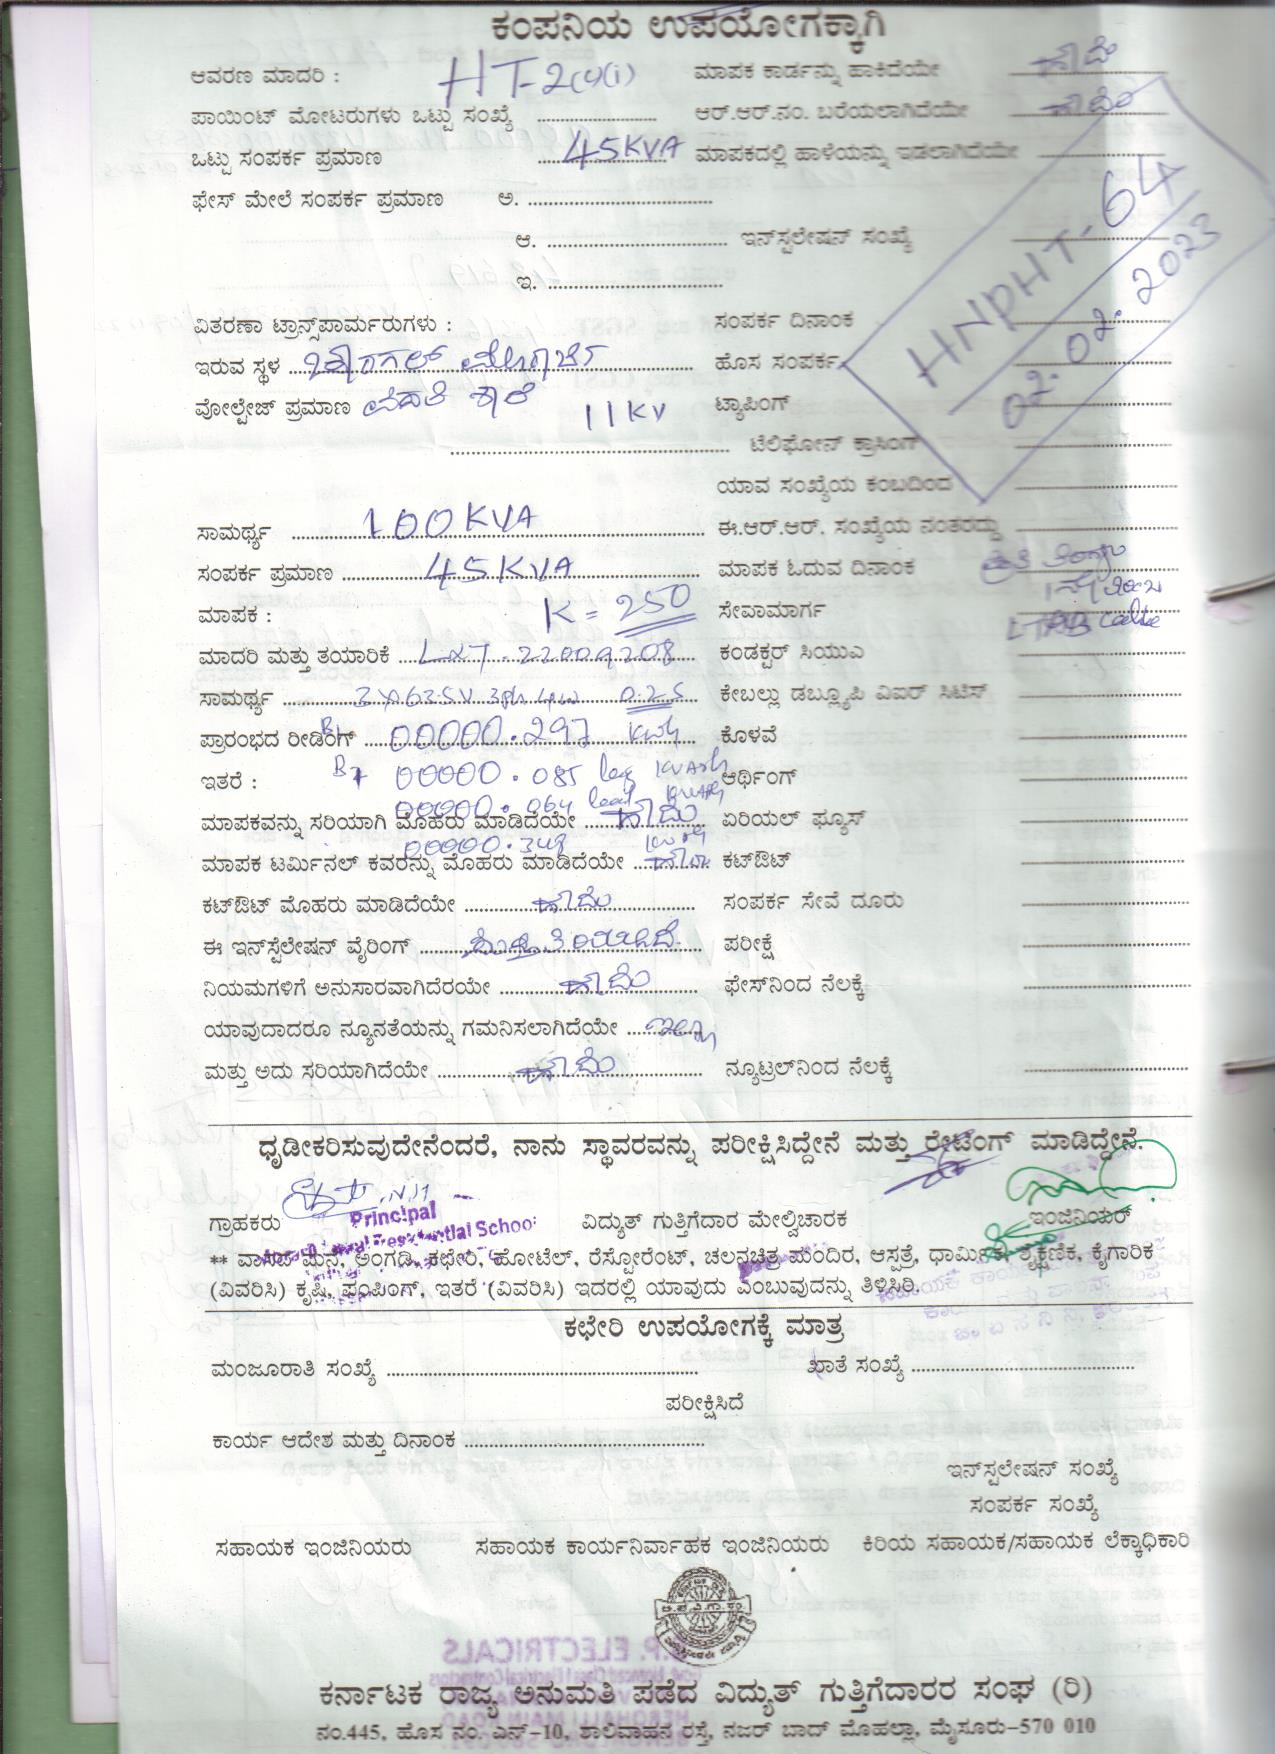 ಕಂಪನಿಯ ಉಪಯೋಗಕ್ಕಾಗಿ
ಆವರಣ ಮಾದರಿ : HT-2(c)(i) ಮಾಪಕ ಕಾರ್ಡನ್ನು ಹಾಕಿದೆಯೇ ಹೌದು
ಪಾಯಿಂಟ್ ಮೋಟರುಗಳು ಒಟ್ಟು ಸಂಖ್ಯೆ ಆರ್.ಆರ್.ನಂ. ಬರೆಯಲಾಗಿದೆಯೇ ಹೌದು
ಒಟ್ಟು ಸಂಪರ್ಕ ಪ್ರಮಾಣ 45KVA ಮಾಪಕದಲ್ಲಿ ಹಾಳೆಯನ್ನು ಇಡಲಾಗಿದೆಯೇ
ಫೇಸ್ ಮೇಲೆ ಸಂಪರ್ಕ ಪ್ರಮಾಣ ಅ.
ಆ. ಇನ್‌ಸ್ಟಲೇಷನ್ ಸಂಖ್ಯೆ
ಇ.
HNPHT-64
02.02.2023
ವಿತರಣಾ ಟ್ರಾನ್ಸ್‌ಫಾರ್ಮರುಗಳು : ಸಂಪರ್ಕ ದಿನಾಂಕ
ಇರುವ ಸ್ಥಳ ಹೊಸ ಸಂಪರ್ಕ
ವೋಲ್ಟೇಜ್ ಪ್ರಮಾಣ 11KV ಟ್ಯಾಪಿಂಗ್
ಟೆಲಿಫೋನ್ ಕ್ರಾಸಿಂಗ್
ಯಾವ ಸಂಖ್ಯೆಯ ಕಂಬದಿಂದ
ಸಾಮರ್ಥ್ಯ 100KVA ಈ.ಆರ್.ಆರ್. ಸಂಖ್ಯೆಯ ನಂತರದ್ದು
ಸಂಪರ್ಕ ಪ್ರಮಾಣ 45KVA ಮಾಪಕ ಓದುವ ದಿನಾಂಕ
ಮಾಪಕ : K = 250 ಸೇವಾಮಾರ್ಗ
ಮಾದರಿ ಮತ್ತು ತಯಾರಿಕೆ L&T-22009208 ಕಂಡಕ್ಟರ್ ಸಿಯುಎ
ಸಾಮರ್ಥ್ಯ 3X63.5V 3ph 4w 0.2S ಕೇಬಲ್ಲು ಡಬ್ಲ್ಯೂಪಿ ವಿಐಆರ್ ಸಿಟಿಸ್
ಪ್ರಾರಂಭದ ರೀಡಿಂಗ್ 00000.297 KWh ಕೊಳವೆ
ಇತರೆ : 00000.085 lag KVArh ಆರ್ಥಿಂಗ್
00000.064 lead KVArh
ಮಾಪಕವನ್ನು ಸರಿಯಾಗಿ ಮೊಹರು ಮಾಡಿದೆಯೇ ಹೌದು ಏರಿಯಲ್ ಫ್ಯೂಸ್
00000.348
ಮಾಪಕ ಟರ್ಮಿನಲ್ ಕವರನ್ನು ಮೊಹರು ಮಾಡಿದೆಯೇ ಹೌದು ಕಟ್‌ಔಟ್
ಕಟ್‌ಔಟ್ ಮೊಹರು ಮಾಡಿದೆಯೇ ಹೌದು ಸಂಪರ್ಕ ಸೇವೆ ದೂರು
ಈ ಇನ್‌ಸ್ಟೆಲೇಷನ್ ವೈರಿಂಗ್ ಪರೀಕ್ಷೆ
ನಿಯಮಗಳಿಗೆ ಅನುಸಾರವಾಗಿದೆರಯೇ ಹೌದು ಫೇಸ್‌ನಿಂದ ನೆಲಕ್ಕೆ
ಯಾವುದಾದರೂ ನ್ಯೂನತೆಯನ್ನು ಗಮನಿಸಲಾಗಿದೆಯೇ ಇಲ್ಲ
ಮತ್ತು ಅದು ಸರಿಯಾಗಿದೆಯೇ ಹೌದು ನ್ಯೂಟ್ರಲ್‌ನಿಂದ ನೆಲಕ್ಕೆ
ಧೃಡೀಕರಿಸುವುದೇನೆಂದರೆ, ನಾನು ಸ್ಥಾವರವನ್ನು ಪರೀಕ್ಷಿಸಿದ್ದೇನೆ ಮತ್ತು ರೇಟಿಂಗ್ ಮಾಡಿದ್ದೇನೆ.
Principal
ಗ್ರಾಹಕರು ವಿದ್ಯುತ್ ಗುತ್ತಿಗೆದಾರ ಮೇಲ್ವಿಚಾರಕ ಇಂಜಿನಿಯರ್
Residential School
** ವಾಸದ ಮನೆ, ಅಂಗಡಿ, ಕಛೇರಿ, ಹೋಟೆಲ್, ರೆಸ್ಟೋರೆಂಟ್, ಚಲನಚಿತ್ರ ಮಂದಿರ, ಆಸ್ಪತ್ರೆ, ಧಾರ್ಮಿಕ, ಶೈಕ್ಷಣಿಕ, ಕೈಗಾರಿಕ
(ವಿವರಿಸಿ) ಕೃಷಿ, ಪಂಪಿಂಗ್, ಇತರೆ (ವಿವರಿಸಿ) ಇದರಲ್ಲಿ ಯಾವುದು ಎಂಬುವುದನ್ನು ತಿಳಿಸಿರಿ.
ಕಛೇರಿ ಉಪಯೋಗಕ್ಕೆ ಮಾತ್ರ
ಮಂಜೂರಾತಿ ಸಂಖ್ಯೆ ಖಾತೆ ಸಂಖ್ಯೆ
ಪರೀಕ್ಷಿಸಿದೆ
ಕಾರ್ಯ ಆದೇಶ ಮತ್ತು ದಿನಾಂಕ
ಇನ್‌ಸ್ಟಲೇಷನ್ ಸಂಖ್ಯೆ
ಸಂಪರ್ಕ ಸಂಖ್ಯೆ
ಸಹಾಯಕ ಇಂಜಿನಿಯರು ಸಹಾಯಕ ಕಾರ್ಯನಿರ್ವಾಹಕ ಇಂಜಿನಿಯರು ಕಿರಿಯ ಸಹಾಯಕ/ಸಹಾಯಕ ಲೆಕ್ಕಾಧಿಕಾರಿ
ಕರ್ನಾಟಕ ರಾಜ್ಯ ಅನುಮತಿ ಪಡೆದ ವಿದ್ಯುತ್ ಗುತ್ತಿಗೆದಾರರ ಸಂಘ (ರಿ)
ನಂ.445, ಹೊಸ ನಂ. ಎನ್-10, ಶಾಲಿವಾಹನ ರಸ್ತೆ, ನಜರ್ ಬಾದ್ ಮೊಹಲ್ಲಾ, ಮೈಸೂರು-570 010